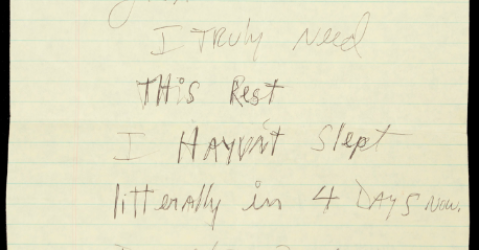 I TRULY Need
THis Rest
I HAVEN't Slept
litterally in 4 DAYS Now.